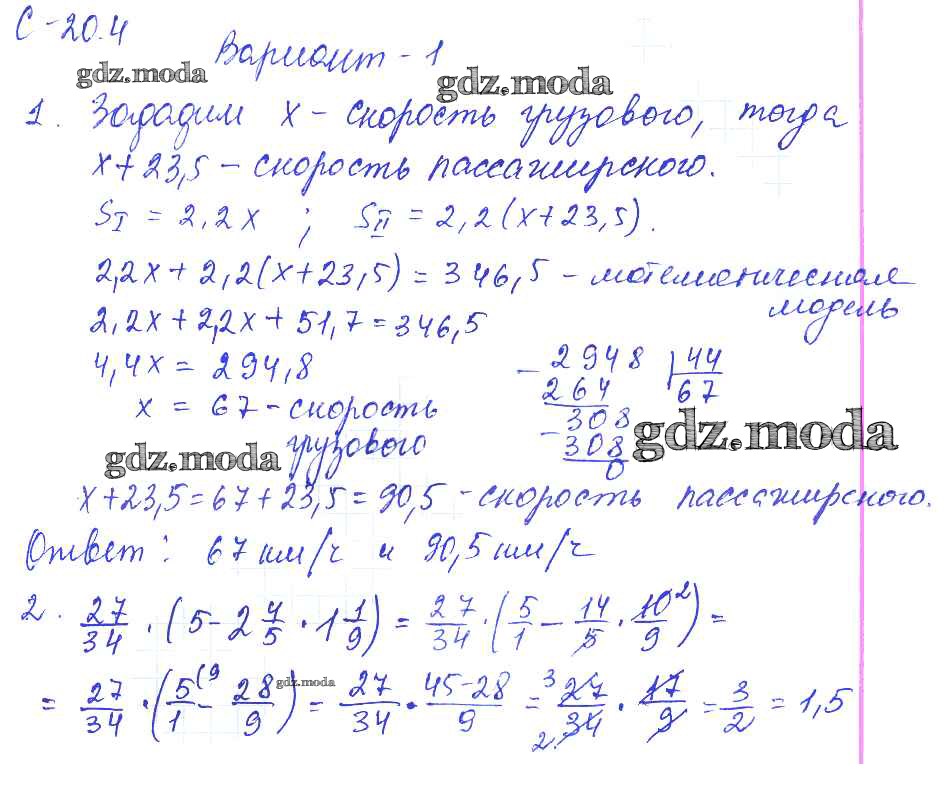 С-20.4
Вариант-1
gdz.moda gdz.moda
1. Зададим x - скорость грузового, тогда
x+23,5 - скорость пассажирского.
S_I = 2,2x ; S_II = 2,2(x+23,5).
2,2x + 2,2(x+23,5) = 346,5 - математическая
модель
2,2x + 2,2x + 51,7 = 346,5
4,4x = 294,8
x = 67 - скорость
грузового
- 2948 | 44
264 67
- 308
308
0
gdz.moda gdz.moda
x+23,5 = 67+23,5 = 90,5 - скорость пассажирского.
Ответ: 67 км/ч и 90,5 км/ч
2. 27/34 · (5 - 2 4/5 · 1 1/9) = 27/34 · (5/1 - 14/5 · 10/9 2) =
= 27/34 · (5/1 (9 - 28/9) = 27/34 · 45-28/9 = 3 27/34 2 · 17/9 = 3/2 = 1,5
gdz.moda